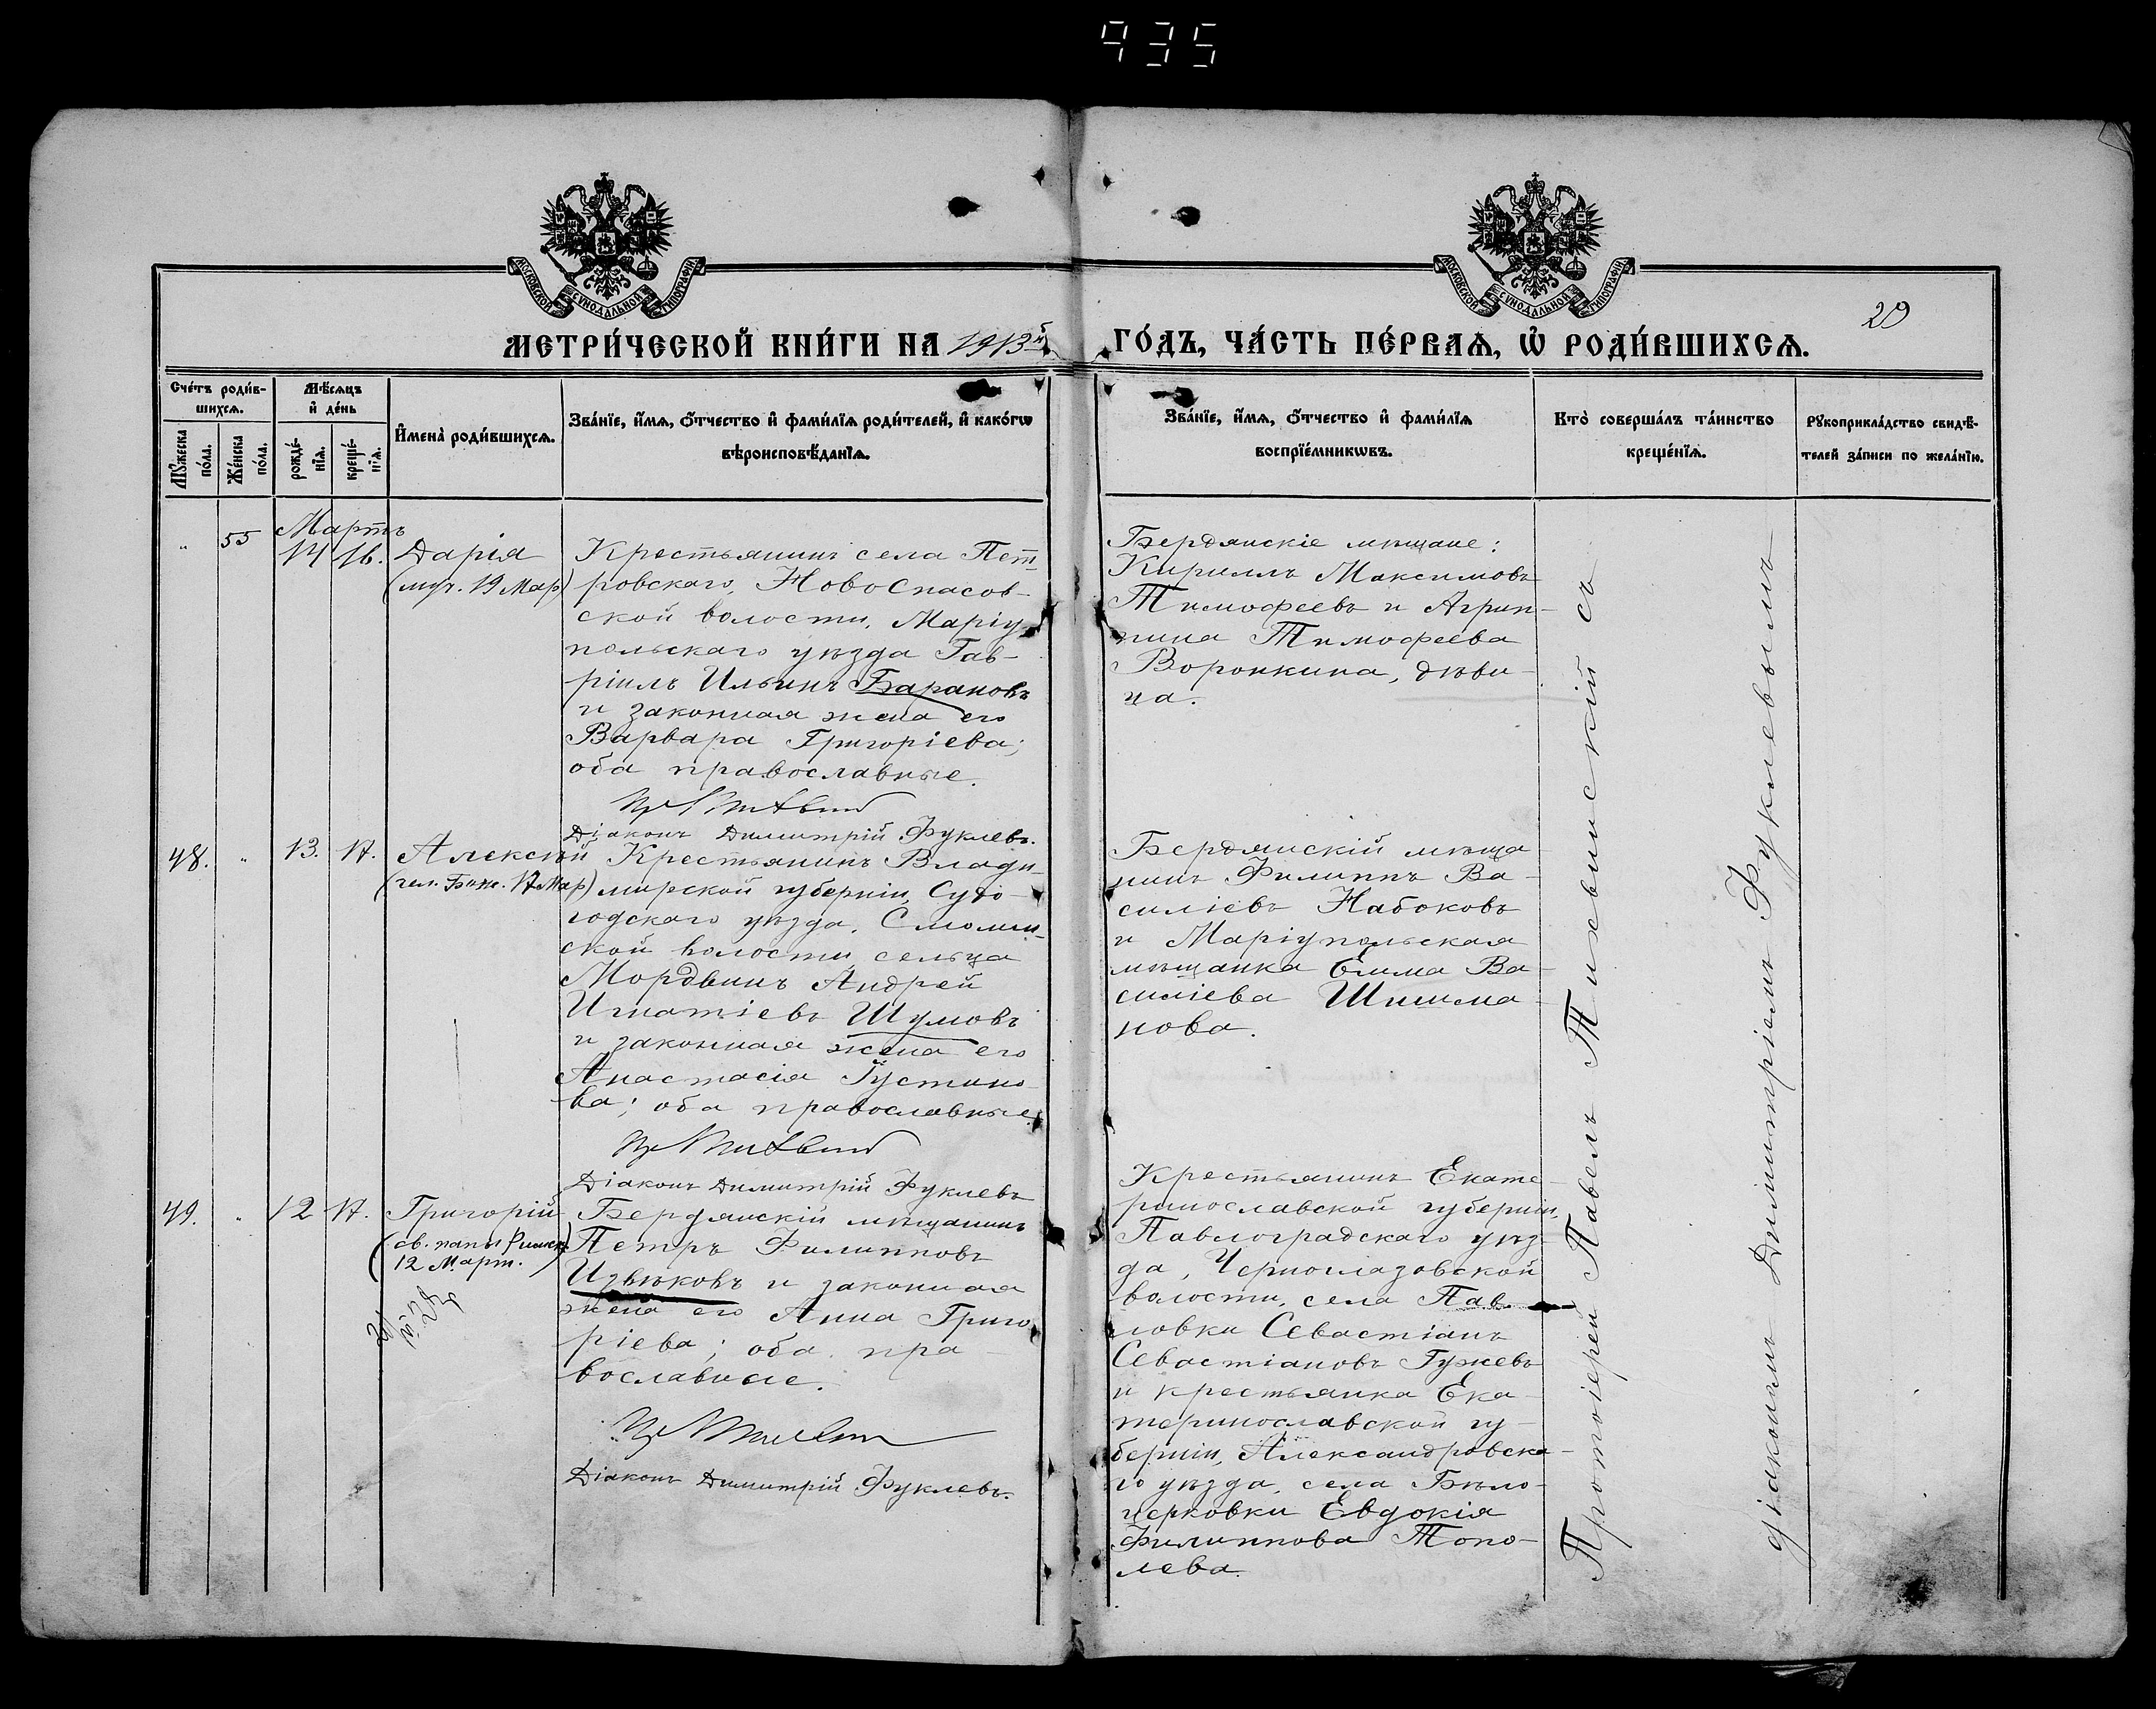 935
МОСКОВСКОЙ СѴНОДАЛЬНОЙ ТИПОГРАФІИ
МОСКОВСКОЙ СѴНОДАЛЬНОЙ ТИПОГРАФІИ
29
МЕТРИ́ЧЕСКОЙ КНИ́ГИ НА 1913й ГО́ДЪ, ЧА́СТЬ ПЕ́РВАѦ, Ѡ҆ РОДИ́ВШИХСѦ.
Сче́тъ роди́в-
шихсѧ.
Мѣ́сѧцъ
и҆ де́нь
Мꙋ́жеска
по́ла.
Же́нска
по́ла.
рожде́-
нїѧ.
креще́-
нїѧ.
И҆мена̀ роди́вшихсѧ.
Зва́нїе, и҆́мѧ, ѻ҆́тчество и҆ фами́лїѧ роди́телей, и҆ како́гѡ
вѣроисповѣ́данїѧ.
Зва́нїе, и҆́мѧ, ѻ҆́тчество и҆ фами́лїѧ
воспрїе́мникѡвъ.
Кто̀ соверша́лъ та́инство
креще́нїѧ.
Рꙋкоприкла́дство свидѣ́-
телей за́писи по жела́нїю.
Мартъ
„ 55 14 16. Дарія
(муч. 19 Мар)
Крестьянинъ села Пет-
ровскаго, Новоспасов-
ской волости, Маріу-
польскаго уѣзда Гав-
ріилъ Ильинъ Барановъ
и законная жена его
Варвара Григоріева;
оба православные.
Діаконъ Димитрій Фуклевъ.
Бердянскіе мѣщане:
Кириллъ Максимовъ
Тимофеевъ и Агрип-
пина Тимофеева
Воронкина, дѣви-
ца.
48. „ 13. 17. Алексѣй
(чел. Бож. 17 Мар)
Крестьянинъ Влади-
мирской губерніи, Судо-
годскаго уѣзда,
ской волости, сельца
Мордвинъ Андрей
Игнатіевъ Шумовъ
и законная жена его
Анастасія Іустино-
ва; оба православные.
Діаконъ Димитрій Фуклевъ
Бердянскій мѣща-
нинъ Филиппъ Ва-
силіевъ Набоковъ
и Маріупольская
мѣщанка Ва-
силіева Шишма-
нова.
49. „ 12 17. Григорій
(св. папы Римск.
12 Март.)
Бердянскій мѣщанинъ
Петръ Филипповъ
Извѣковъ и законная
жена его Анна Григо-
ріева; оба пра-
вославные.
Діаконъ Димитрій Фуклевъ.
Крестьянинъ Екате-
ринославской губерніи,
Павлоградскаго уѣз-
да,
волости, села Пав-
ловки Севастіанъ
Севастіановъ Гужевъ
и крестьянка Ека-
теринославской гу-
берніи, Александровска-
го уѣзда, села Бѣло-
церковки Евдокія
Филиппова Топо-
лева.
Протоіерей Павелъ Тихвинскій съ
діакономъ Димитріемъ Фуклевымъ